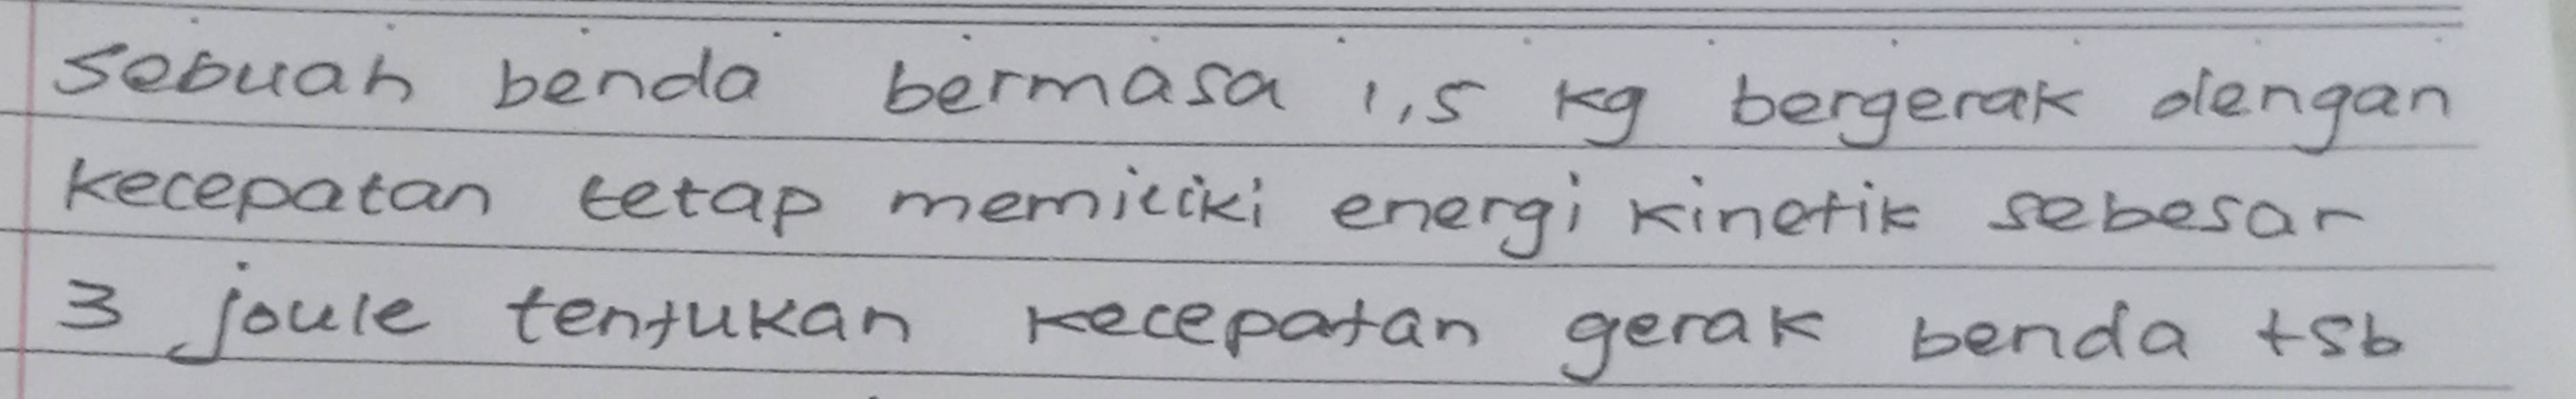 sebuah benda bermasa 1,5 kg bergerak dengan
kecepatan tetap memiliki energi kinetik sebesar
3 joule tentukan kecepatan gerak benda tsb